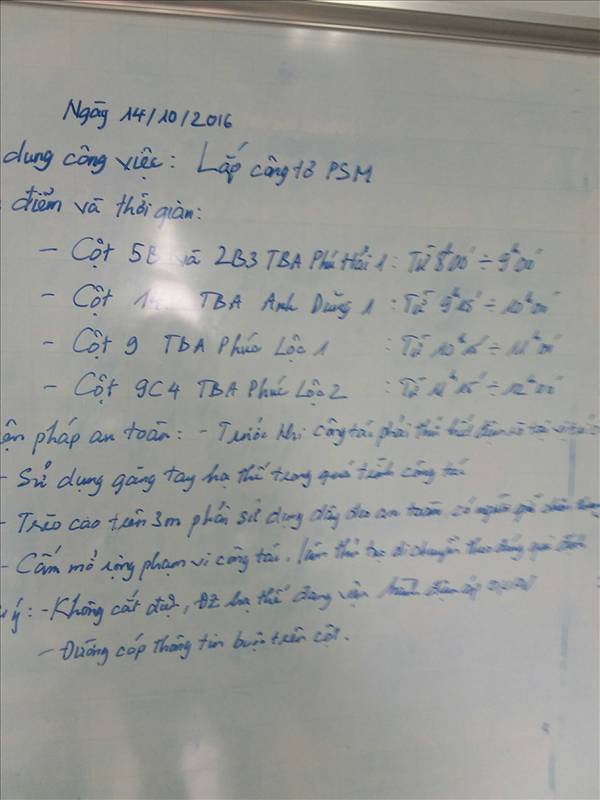 Ngày 14/10/2016
dung công việc: Lắp công tơ PSM
điểm và thời gian:
- Cột 5B và 2B3 TBA Phú Hải 1: Từ 8h00' ÷ 9h00'
- Cột TBA Anh Dũng 1 : Từ 9h15' ÷ 10h00'
- Cột 9 TBA Phúc Lộc 1 : Từ 10h15' ÷ 11h00'
- Cột 9C4 TBA Phúc Lộc 2 : Từ 11h15' ÷ 12h00'
ện pháp an toàn: - Trước khi công tác phải thử hết điện
- Sử dụng găng tay hạ thế trong quá trình công tác
- Trèo cao trên 3m phải sử dụng dây đeo an toàn, có người
- Cấm mở rộng phạm vi công tác. thủ tục di chuyển theo đúng quy định
ý: - Không cắt điện, ĐZ hạ thế đang vận hành điện áp
- Đường cáp thông tin buộc trên cột.